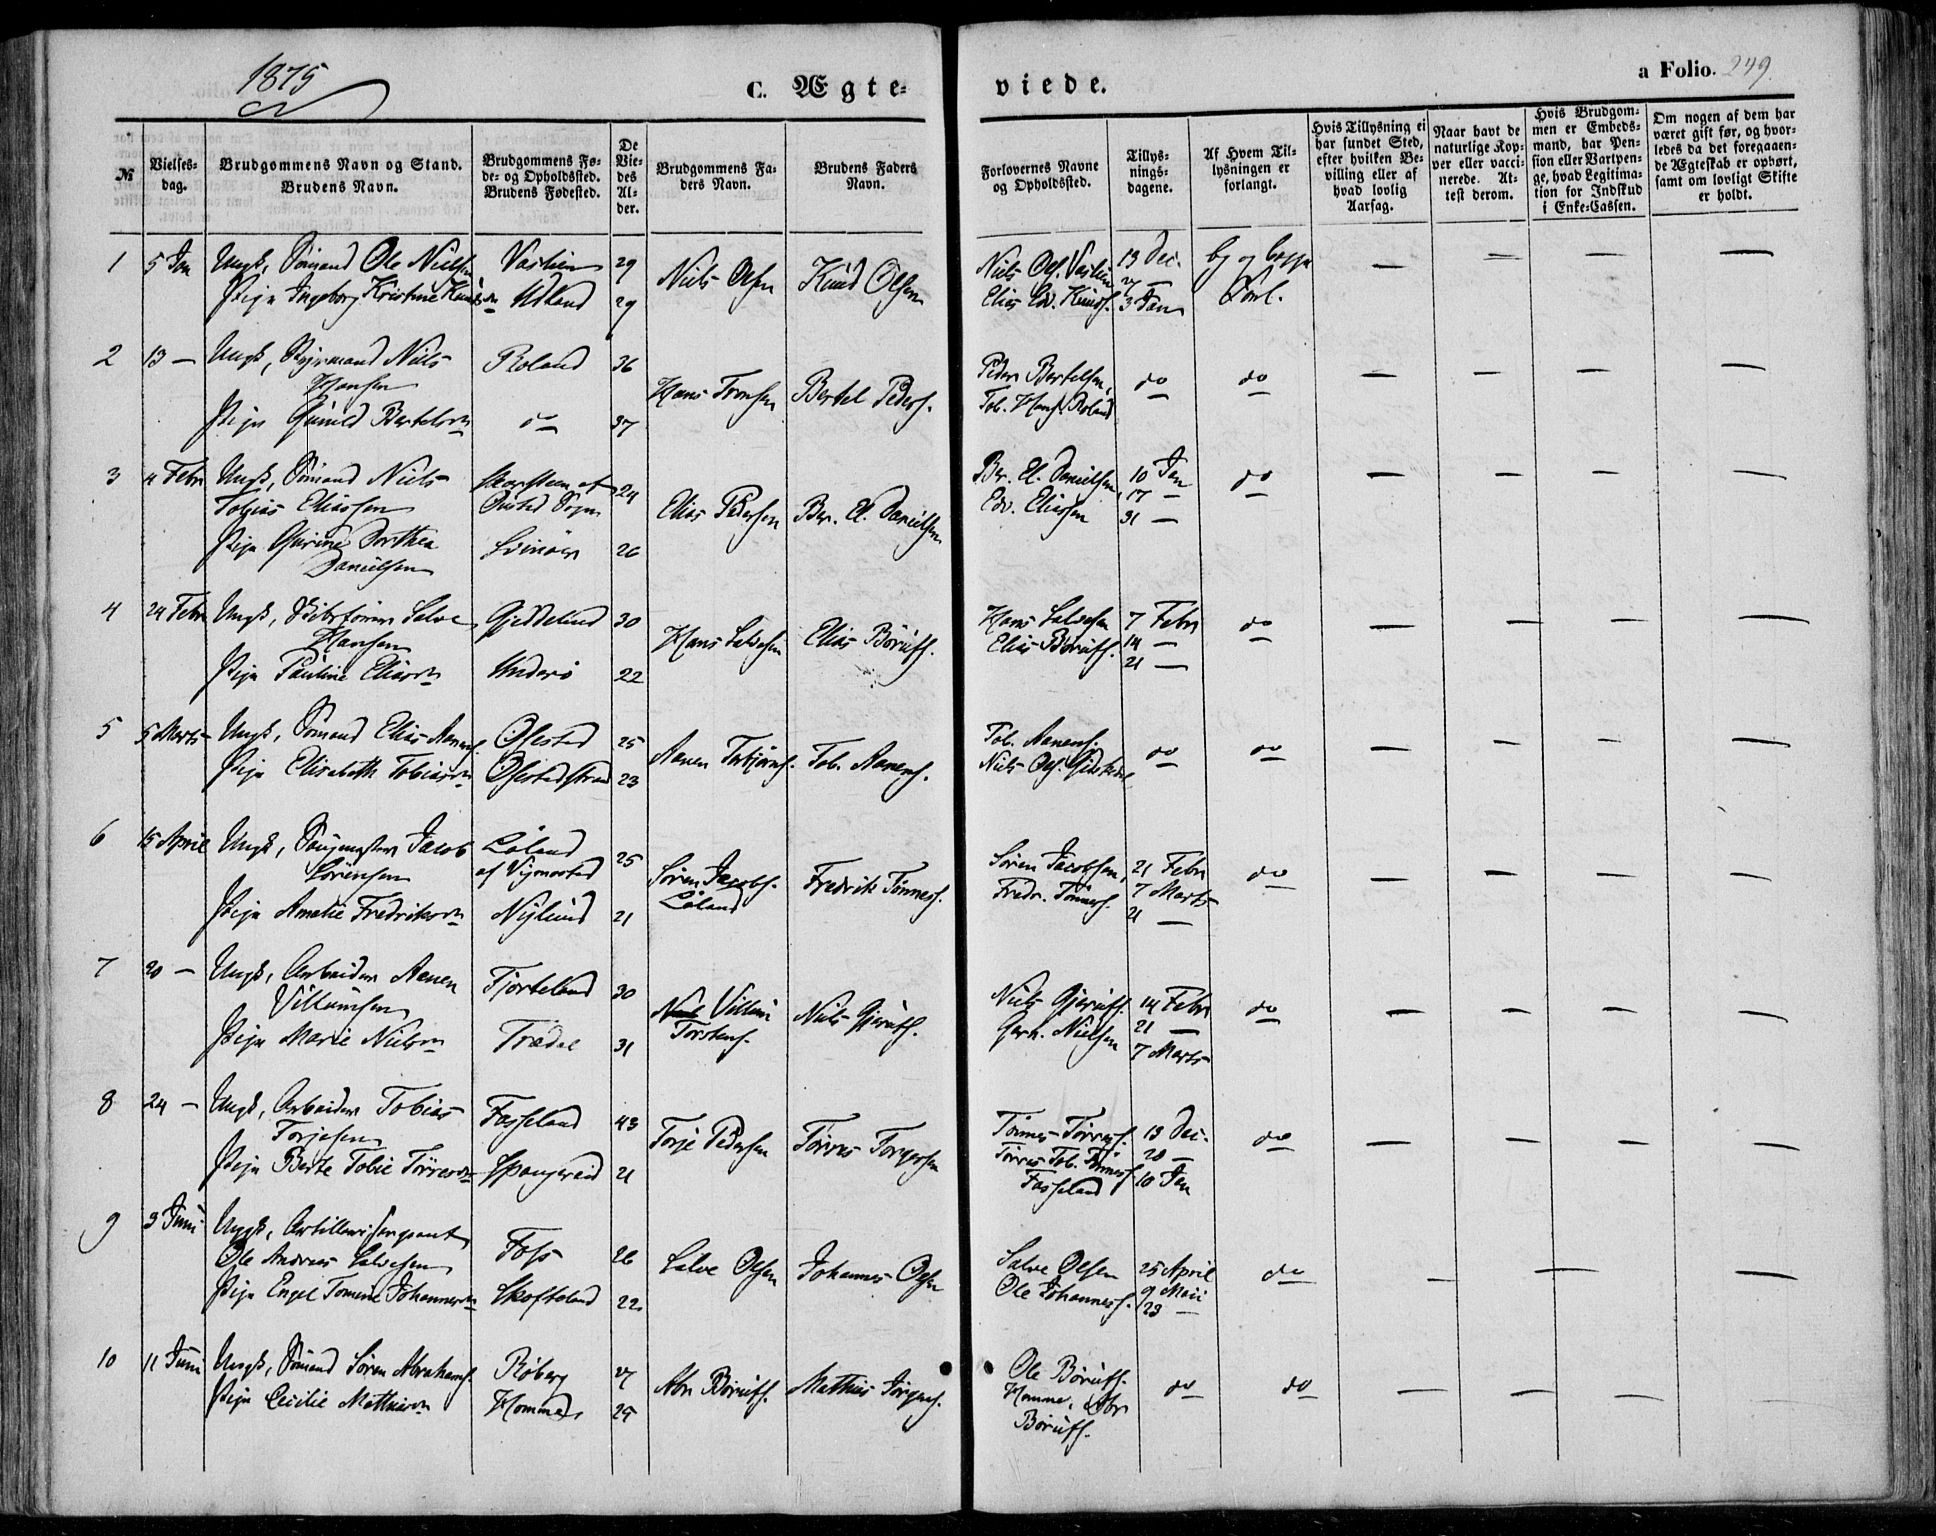 1875
C. Ægte=
viede.
a Folio. 249.
№
Vielses=
dag.
Brudgommens Navn og Stand.
Brudens Navn.
Brudgommens Fø=
de= og Opholdssted.
Brudens Fødested.
De
Vie=
des
Al=
der.
Brudgommens Fa=
ders Navn.
Brudens Faders
Navn.
Forlovernes Navne
og Opholdssted.
Tillys=
nings=
dagene.
Af Hvem Til=
lysningen er
forlangt.
Hvis Tillysning ei
har fundet Sted,
efter hvilken Be=
villing eller af
hvad lovlig
Aarsag.
Naar havt de
naturlige Kop=
per eller vacci=
nerede. At=
test derom.
Hvis Brudgom=
men er Embeds=
mand, har Pen=
sion eller Vartpen=
ge, hvad Legitima=
tion for Indskud
i Enke=Cassen.
Om nogen af dem har
været gift før, og hvor=
ledes da det foregaaen=
de Ægteskab er ophørt,
samt om lovligt Skifte
er holdt.
1 5 Jan Ungk, Sømand Ole Nielsen 29 Niels Olsen Knud Olsen Niels Ols. 13 Dec.
Pige Ingeborg Kristine Udland 29 Elias Edv. Knuds. 3 Jan Forl.
2 13 — Ungk, Styrmand Niels Roland 36 Peder Bertelsen,
Hansen Hans Bertel Peders. do do
Pige Gunild Bertelsen do 37 Tob. Hans. Roland
3 4 Febr Ungk, Sømand Niels 24 Ber. El. Danielsen, 10 Jan do
Tobias Eliassen Sogn Elias Pedersen Ber. El. Danielsen Edv. Eliassen 17 —
31 —
Pige Dorthea Svinøer 26
Danielsen
4 24 Febr Ungk, Salve Gjeddelund 30 Hans Salvesen 7 Febr do
Hansen Hans Salvesen Elias Børufs. Elias Børufs. 14 —
Pige Pauline Eliasen Underø 22 21 —
5 5 Marts Ungk, Sømand Elias Aanens. Ofested 25 Tob. Aanens.
Aanen Tob. Aanens. do do
Pige Elisabeth Tobiasen 23 Niels Ols.
6 15 April Ungk, Jacob Løland 25 Søren Jacobsen, 21 Febr do
Sørensen af Vigmostad Søren Jacobs. Fredrik Tønnes. Fredr. Tønnes. 7 Marts
Løland
Pige Amalie Fredriksen Nylund 21 21 —
7 20 — Ungk, Arbeider Aanen Fjorteland 30 Niels 14 Febr do
Villumsen Villum Niels 21 —
Torstens.
Pige Marie Nielsen Trædal 31 Nielsen 7 Marts
8 24 — Ungk, Arbeider Tobias Fasseland 43 Tønnes Tørres. 13 Dec. do
Torjesen Torje Pedersen Tørres Torgersen Tørres Tob. Tønnes. 20 —
Pige Berte Tobie Tørresen Spangereid 21 Fasseland 10 Jan
9 3 Juni Ungk, Artillerisergeant
Ole Andreas Salvesen Foss 26 Salve Olsen Johannes Olsen Salve Olsen 25 April do
9 Mai
Pige Engel Tomine Johannesen Skofteland 22 Ole Johannes. 23 —
10 11 Juni Ungk, Sømand Søren Abrahams. Røberg 27 Abr Børufs. Mathias Jørgens. Ole Børufs.
Pige Cecilie Mathiasen Homme 25 Homme, Abr do do
Børufs.